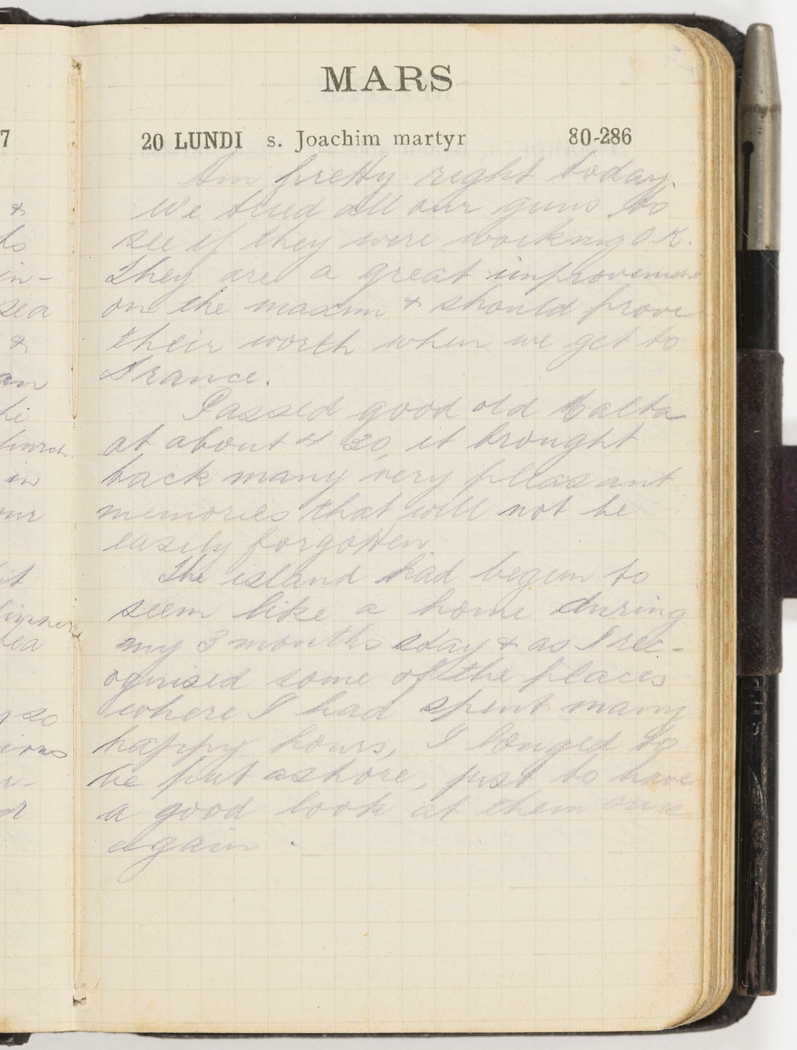 MARS
20 LUNDI s. Joachim martyr 80-286
Am pretty right today.
We tried all our guns to
see if they were working O.K.
They are a great improvement
on the maxim & should prove
their worth when we get to
France.
Passed good old Malta
at about 4 30, it brought
back many very pleasant
memories that will not be
easily forgotten.
The island had begun to
seem like a home during
my 3 months stay & as I rec-
ognised some of the places
where I had spent many
happy hours, I longed to
be put ashore, just to have
a good look at them once
again.
7
&
in-
sea
&
an
in
our
it
dinner
tea
so